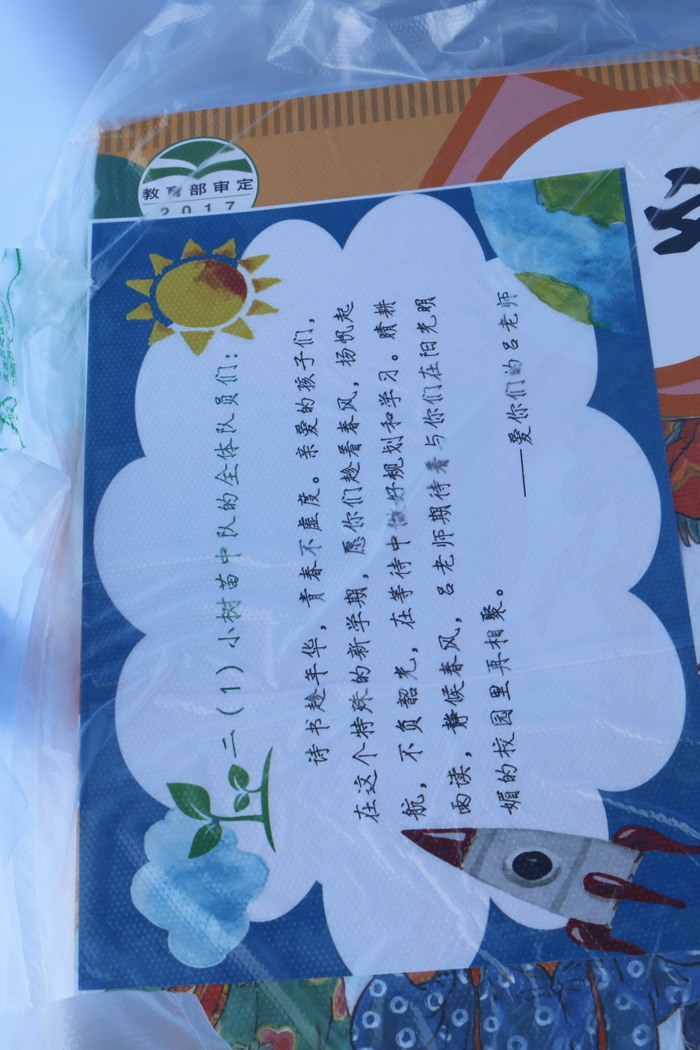 教育部审定
2017
二（1）小树苗中队的全体队员们：
诗书趁年华，青春不虚度。亲爱的孩子们，
在这个特殊的新学期，愿你们趁着春风，扬帆起
航，不负韶光，在等待中做好规划和学习。晴耕
雨读，静候春风，吕老师期待着与你们在阳光明
媚的校园里再相聚。
——爱你们的吕老师